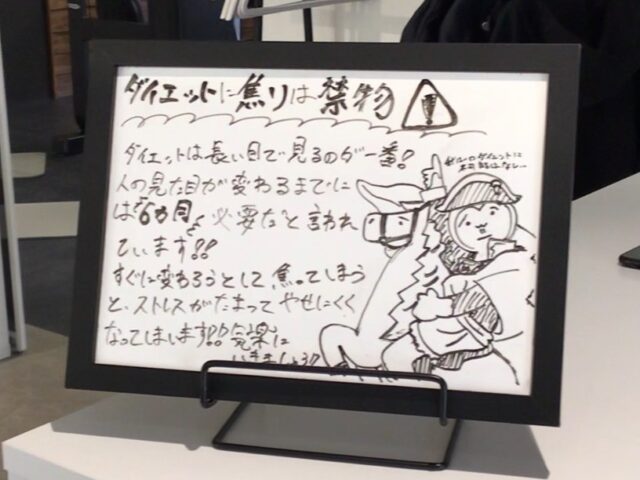 ダイエットに焦りは禁物
ダイエットは長い目で見るのが一番!
人の見た目が変わるまでに
は"6カ月"必要だと言われ
ています!!
すぐに変わろうとして、焦ってしまう
と、ストレスがたまってやせにくく
なってしまします!!気楽に
いきましょう!!
のダイエットに